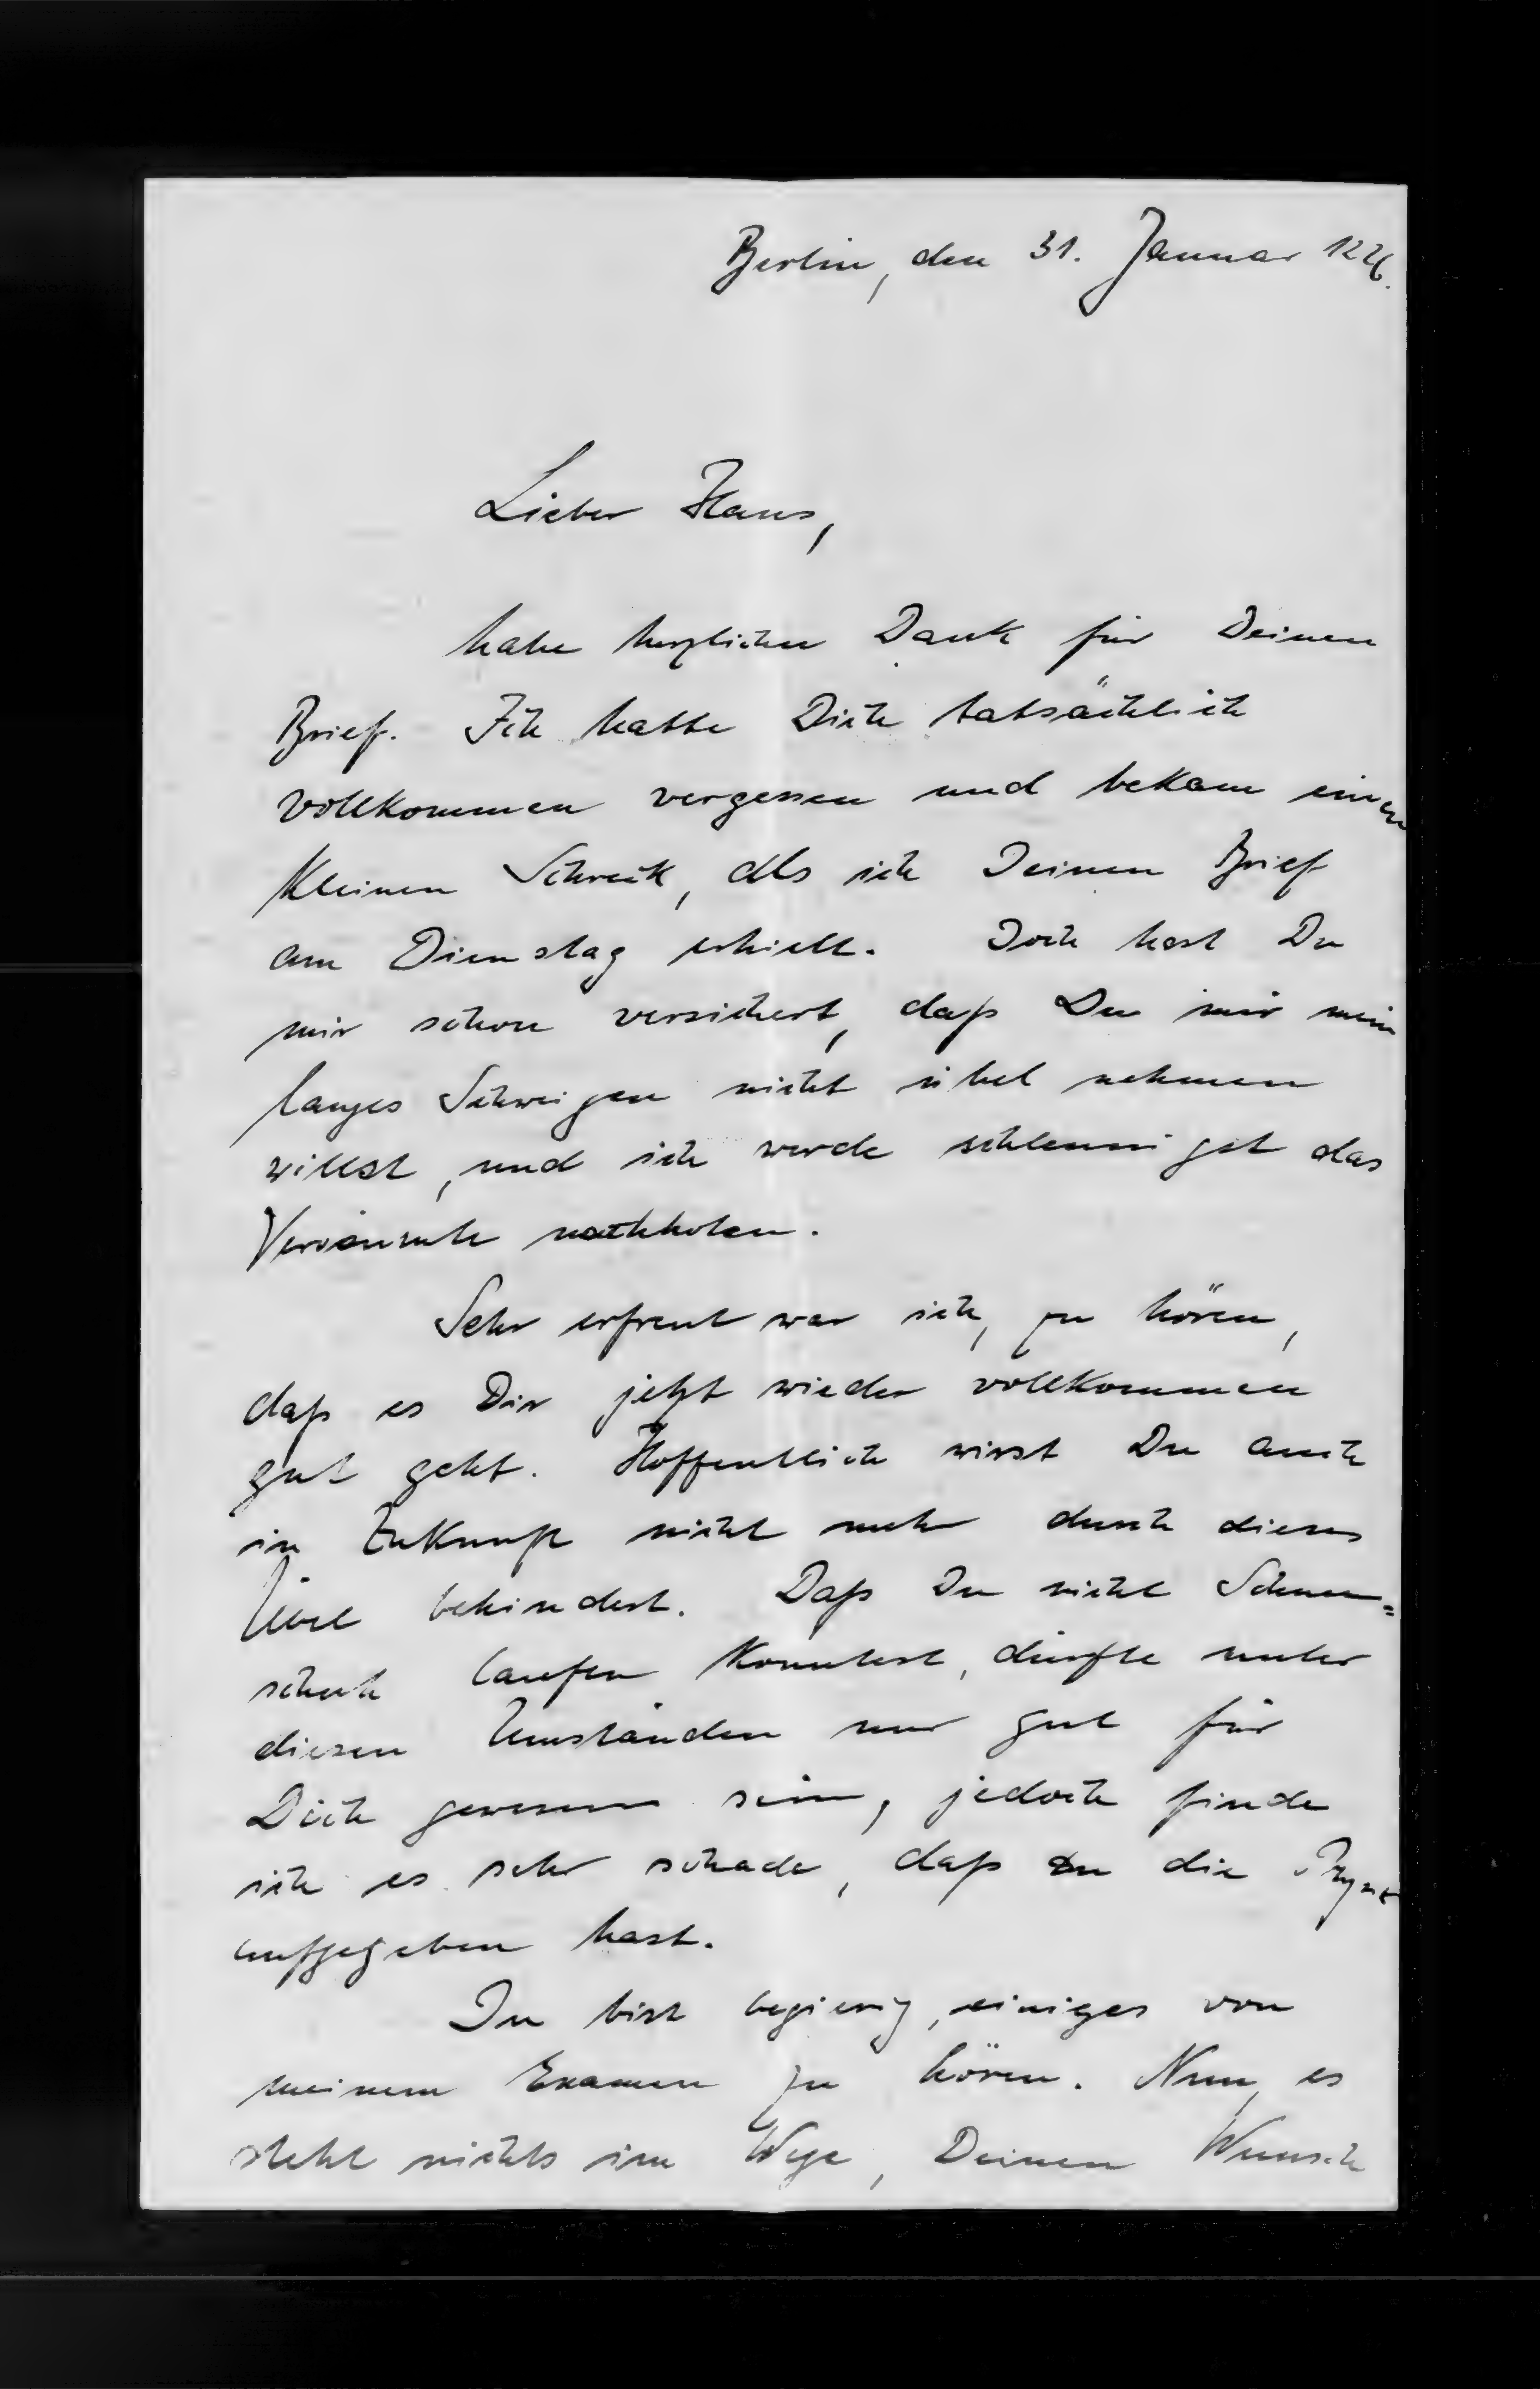 Berlin, den 31. Januar 1926.
Lieber Hans,
habe herzlichen Dank für Deinen
Brief. Ich hatte Dich tatsächlich
vollkommen vergessen und bekam einen
kleinen Schreck, als ich Deinen Brief
am Dienstag erhielt. Doch hast Du
mir schon versichert, daß Du mir mein
langes Schweigen nicht übel nehmen
willst, und ich werde schleunigst das
Versäumte nachholen.
Sehr erfreut war ich, zu hören,
daß es Dir jetzt wieder vollkommen
gut geht. Hoffentlich wirst Du auch
in Zukunft nicht mehr durch dieses
Übel behindert. Daß Du nicht Schnee=
schuh laufen konntest, dürfte unter
diesen Umständen nur gut für
Dich gewesen sein, jedoch finde
ich es sehr schade, daß Du die
aufgegeben hast.
Du bist begierig, einiges von
meinem Examen zu hören. Nun, es
steht nichts im Wege, Deinen Wunsch